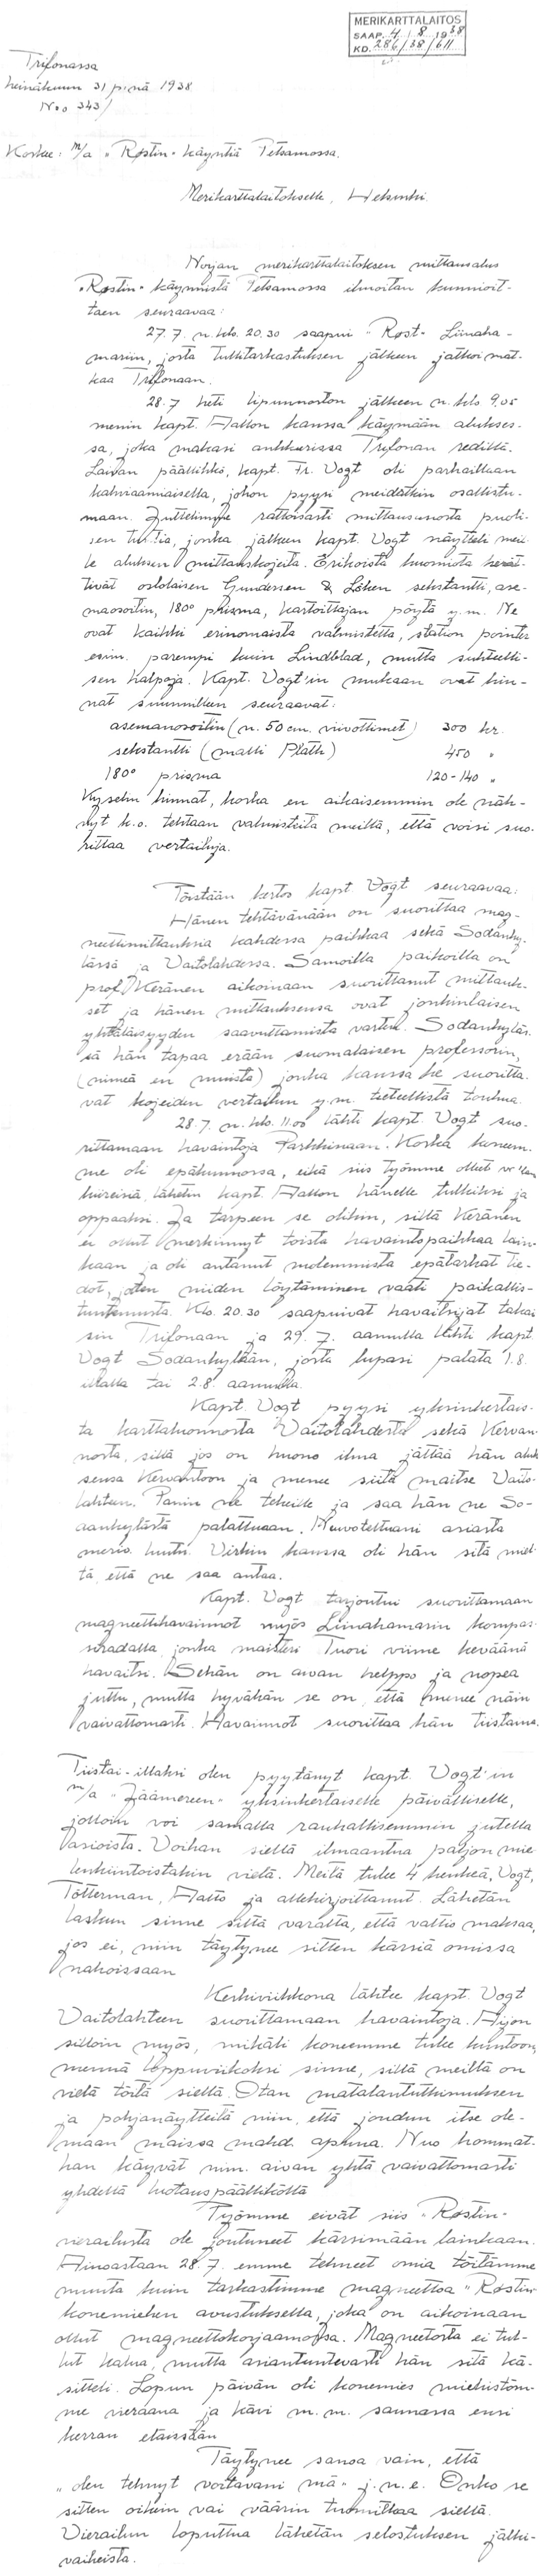 MERIKARTTALAITOS
SAAP. 4 / 8 1938
KD. 286/38/611
Trifonassa
heinäkuun 31 p:nä 1938
N:o 343/
Koskee: m/a "Røstin" käyntiä Petsamossa.
Merikarttalaitokselle, Helsinki.
Norjan merikarttalaitoksen mittausalus
"Røstin" käynnistä Petsamossa ilmoitan kunnioit-
taen seuraavaa:
27.7. n. klo. 20.30 saapui "Røst" Liinaha-
mariin, josta tullitarkastuksen jälkeen jatkoi mat-
kaa Trifonaan.
28.7 heti lipunnoston jälkeen n. klo 9.05
menin kapt. Aallon kanssa käymään alukses-
sa, joka makasi ankkurissa Trifonan redillä.
Laivan päällikkö, kapt. Fr. Vogt oli parhaillaan
kahviaamiaisella, johon pyysi meidätkin osallistu-
maan. Juttelimme rattoisasti mittausasioista puoli-
sen tuntia, jonka jälkeen kapt. Vogt näytteli meil-
le aluksen mittauskojeita. Erikoista huomiota herät-
tivät oslolaisen Gundersen & Løken sekstantti, ase-
manosoitin, 180° prisma, kartoittajan pöytä y.m. Ne
ovat kaikki erinomaista valmistetta, station pointer
esim. parempi kuin Lindblad, mutta suhteelli-
sen halpoja. Kapt. Vogt'in mukaan ovat hin-
nat suunnilleen seuraavat:
asemanosoitin (n. 50 cm. viivottimet) 300 kr.
sekstantti (malli Plath) 450 "
180° prisma 120-140 "
Kyselin hinnat, koska en aikaisemmin ole näh-
nyt k.o. tehtaan valmisteita meillä, että voisi suo-
rittaa vertailuja.
Töistään kertoi kapt. Vogt seuraavaa:
Hänen tehtävänään on suorittaa mag-
neettimittauksia kahdessa paikkaa sekä Sodanky-
lässä ja Vaitolahdessa. Samoilla paikoilla on
prof. Keränen aikoinaan suorittanut mittauk-
set ja hänen mittauksensa ovat jonkinlaisen
yhtäläisyyden saavuttamista varten. Sodankyläs-
sä hän tapaa erään suomalaisen professorin,
(nimeä en muista) jonka kanssa he suoritta-
vat kojeiden vertailun y.m. tieteellistä touhua.
28.7. n. klo. 11.00 lähti kapt. Vogt suo-
rittamaan havaintoja Parkkinaan. Koska koneem-
me oli epäkunnossa, eikä siis työmme ollut
kiireinä, lähetin kapt. Aallon hänelle tulkiksi ja
oppaaksi. Ja tarpeen se olikin, sillä Keränen
ei ollut merkinnyt toista havaintopaikkaa lain-
kaan ja oli antanut molemmista epätarkat tie-
dot, joten niiden löytäminen vaati paikallis-
tuntemusta. Klo. 20.30 saapuivat havaitsijat takai-
sin Trifonaan ja 29.7. aamulla lähti kapt.
Vogt Sodankylään, josta lupasi palata 1.8.
illalla tai 2.8. aamulla.
Kapt. Vogt pyysi yksinkertais-
ta karttaluonnosta Vaitolahdesta sekä Kervan-
nosta, sillä jos on huono ilma jättää hän aluk-
sensa Kervantoon ja menee sieltä maitse Vaito-
lahteen. Panin ne tekeille ja saa hän ne So-
dankylästä palattuaan. Neuvoteltuani asiasta
meriv. luutn. Virkin kanssa oli hän sitä miel-
tä, että ne saa antaa.
Kapt. Vogt tarjoutui suorittamaan
magneettihavainnot myös Liinahamarin kompas-
siradalla, jonka maisteri Tuori viime keväänä
havaitsi. Sehän on aivan helppo ja nopea
juttu, mutta hyvähän se on, että menee näin
vaivattomasti. Havainnot suorittaa hän tiistaina.
Tiistai-illaksi olen pyytänyt kapt. Vogt'in
m/a "Jäämereen" yksinkertaiselle päivälliselle,
jolloin voi samalla rauhallisemmin jutella
asioista. Voihan sieltä ilmaantua paljon mie-
lenkiintoistakin vielä. Meitä tulee 4 henkeä, Vogt,
Tötterman, Aalto ja allekirjoittanut. Lähetän
laskun sinne siltä varalta, että valtio maksaa,
jos ei, niin täytynee sitten kärsiä omissa
nahoissaan.
Keskiviikkona lähtee kapt. Vogt
Vaitolahteen suorittamaan havaintoja. Aijon
silloin myös, mikäli koneemme tulee kuntoon,
mennä loppuviikoksi sinne, sillä meillä on
vielä töitä siellä. Otan matalantutkimuksen
ja pohjanäytteitä niin, että joudun itse ole-
maan maissa mahd. apuna. Nuo hommat-
han käyvät nim. aivan yhtä vaivattomasti
yhdellä luotauspäälliköllä
Työmme eivät siis "Røstin"
vierailusta ole joutuneet kärsimään lainkaan.
Ainoastaan 28.7. emme tehneet omia töitämme
muuta kuin tarkastimme magneettoa "Røstin"
konemiehen avustuksella, joka on aikoinaan
ollut magneettokorjaamossa. Magneetosta ei tul-
lut kalua, mutta asiantuntevasti hän sitä kä-
sitteli. Lopun päivän oli konemies miehistöm-
me vieraana ja kävi m.m. saunassa ensi
kerran eläissään.
Täytynee sanoa vain, että
"olen tehnyt voitavani mä" j.n.e. Onko se
sitten oikein vai väärin tuomitkaa siellä.
Vierailun loputtua lähetän selostuksen jälki-
vaiheista.